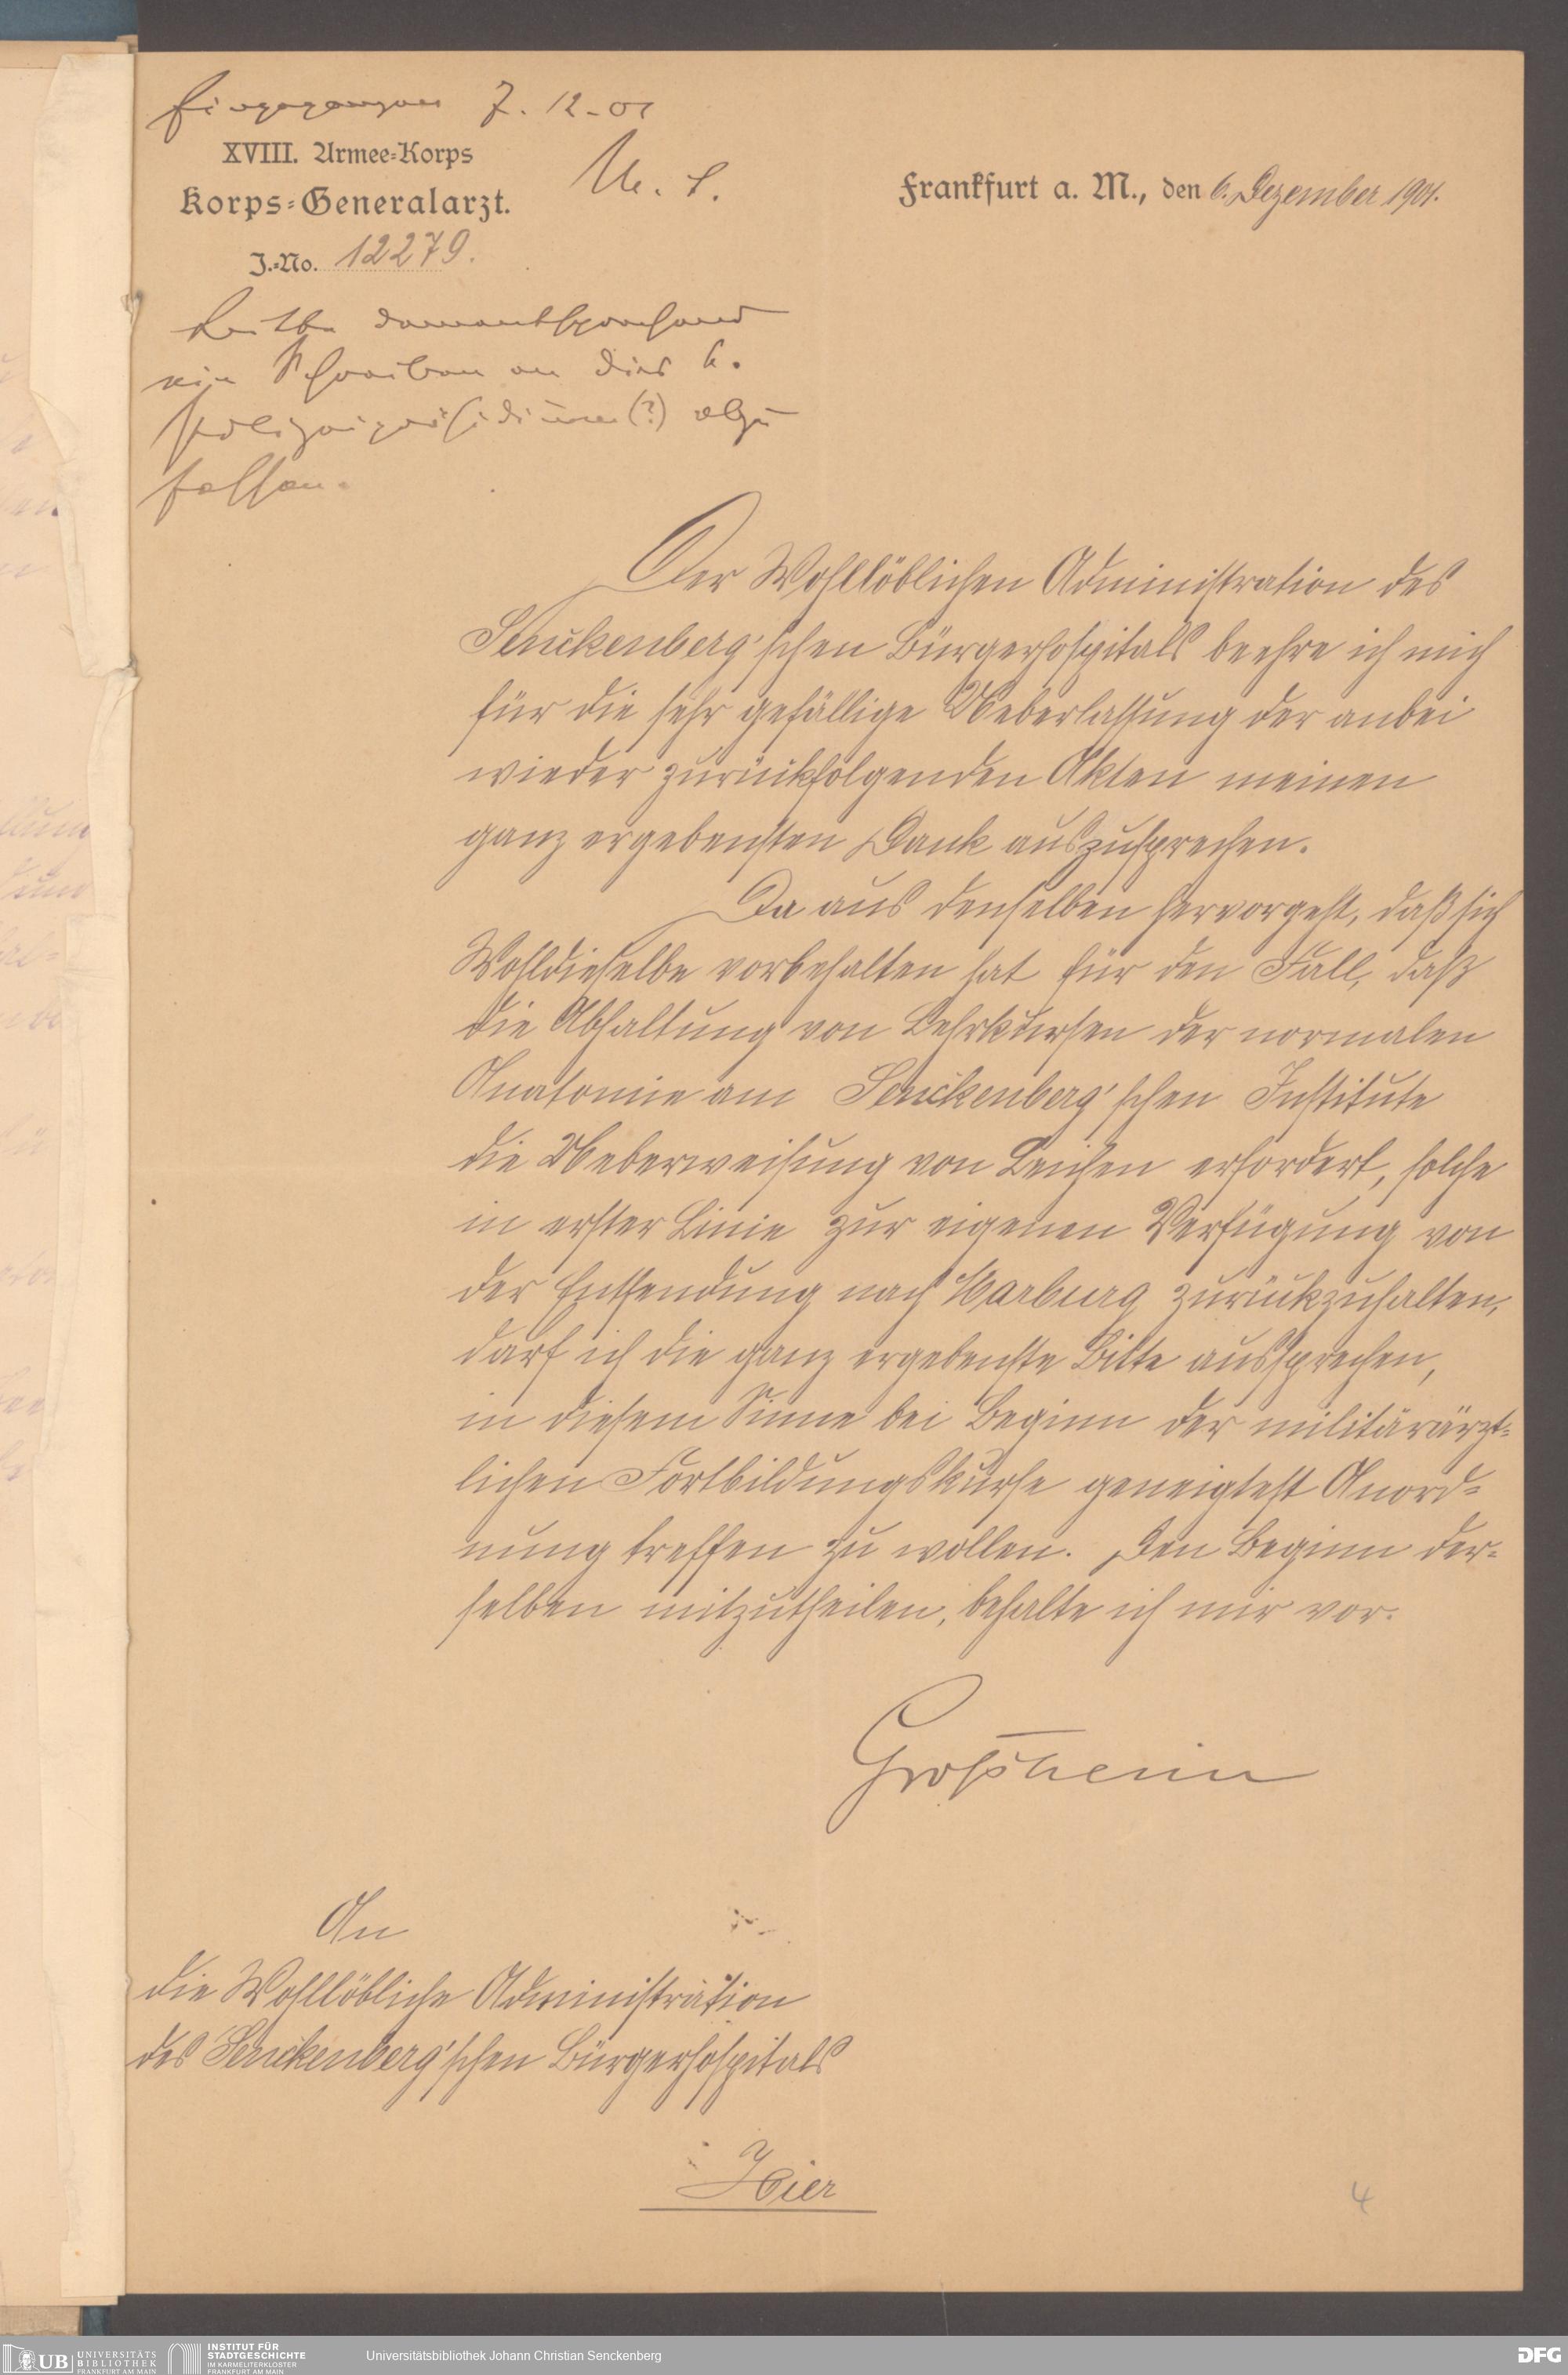 Eingegangen 7. 12. 01
XVIII. Armee-Korps
Korps-Generalarzt.
J.-No. 12279.
Frankfurt a. M., den 6. Dezember 1901.
Bitte dementsprechend
ein Schreiben an das k.
Polizeipräsidium (?) abzu
fassen.
Der Wohllöblichen Administration des
Senckenberg'schen Bürgerhospitals beehre ich mich
für die sehr gefällige Ueberlassung der anbei
wieder zurückfolgenden Akten meinen
ganz ergebensten Dank auszusprechen.
Da aus denselben hervorgeht, daß sich
Wohldieselbe vorbehalten hat für den Fall, daß
die Abhaltung von Lehrkursen der normalen
Anatomie am Senckenberg'schen Institute
die Ueberweisung von Leichen erfordert, solche
in erster Linie zur eigenen Verfügung von
der Entsendung nach Marburg zurückzuhalten,
darf ich die ganz ergebenste Bitte aussprechen,
in diesem Sinne bei Beginn der militärärzt-
lichen Fortbildungskurse geneigtest Anord-
nung treffen zu wollen. Den Beginn der-
selben mitzutheilen, behalte ich mir vor.
Großheim
An
die Wohllöbliche Administration
des Senckenberg'schen Bürgerhospitals
Hier
4
UB UNIVERSITÄTS
BIBLIOTHEK
FRANKFURT AM MAIN
INSTITUT FÜR
STADTGESCHICHTE
IM KARMELITERKLOSTER
FRANKFURT AM MAIN
Universitätsbibliothek Johann Christian Senckenberg
DFG